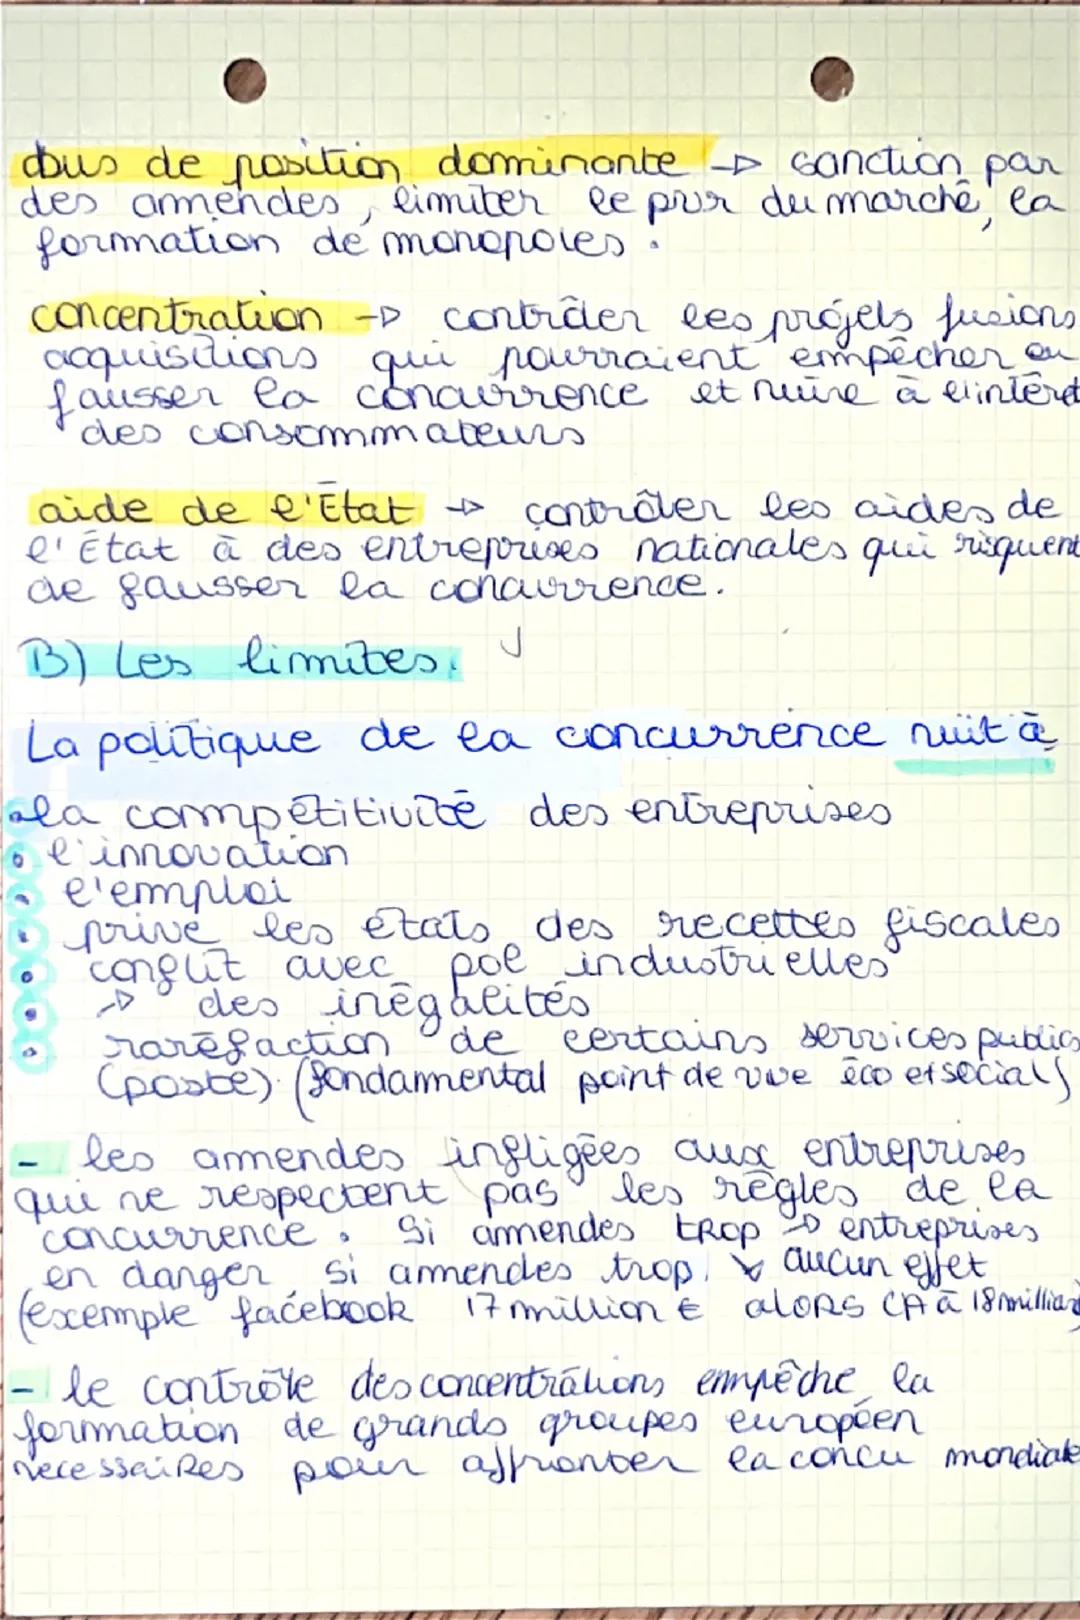 abus de position dominante → sanction par
des amendes, limiter le pvr du marché, la
formation de monopoles.
concentration → contrôler les projets fusions
acquisitions qui pourraient empêcher ou
fausser la concurrence et nuire à l'intérêt
des consommateurs
aide de l'État → contrôler les aides de
l'État à des entreprises nationales qui risquent
de fausser la concurrence.
B) Les limites.
La politique de la concurrence nuit à
• la compétitivité des entreprises
• l'innovation
• l'emploi
• prive les états des recettes fiscales
• conflit avec pol industrielles
• → des inégalités
• raréfaction de certains services publics
(poste) (fondammental point de vue éco et social)
- les amendes infligées aux entreprises
qui ne respectent pas les règles de la
concurrence. Si amendes trop ↗ entreprises
en danger si amendes trop ↘ aucun effet
(exemple facebook 17 million € alors CA à 18 milliard)
- le contrôle des concentrations empêche la
formation de grands groupes européen
necessaires pour affronter la concu mondiale